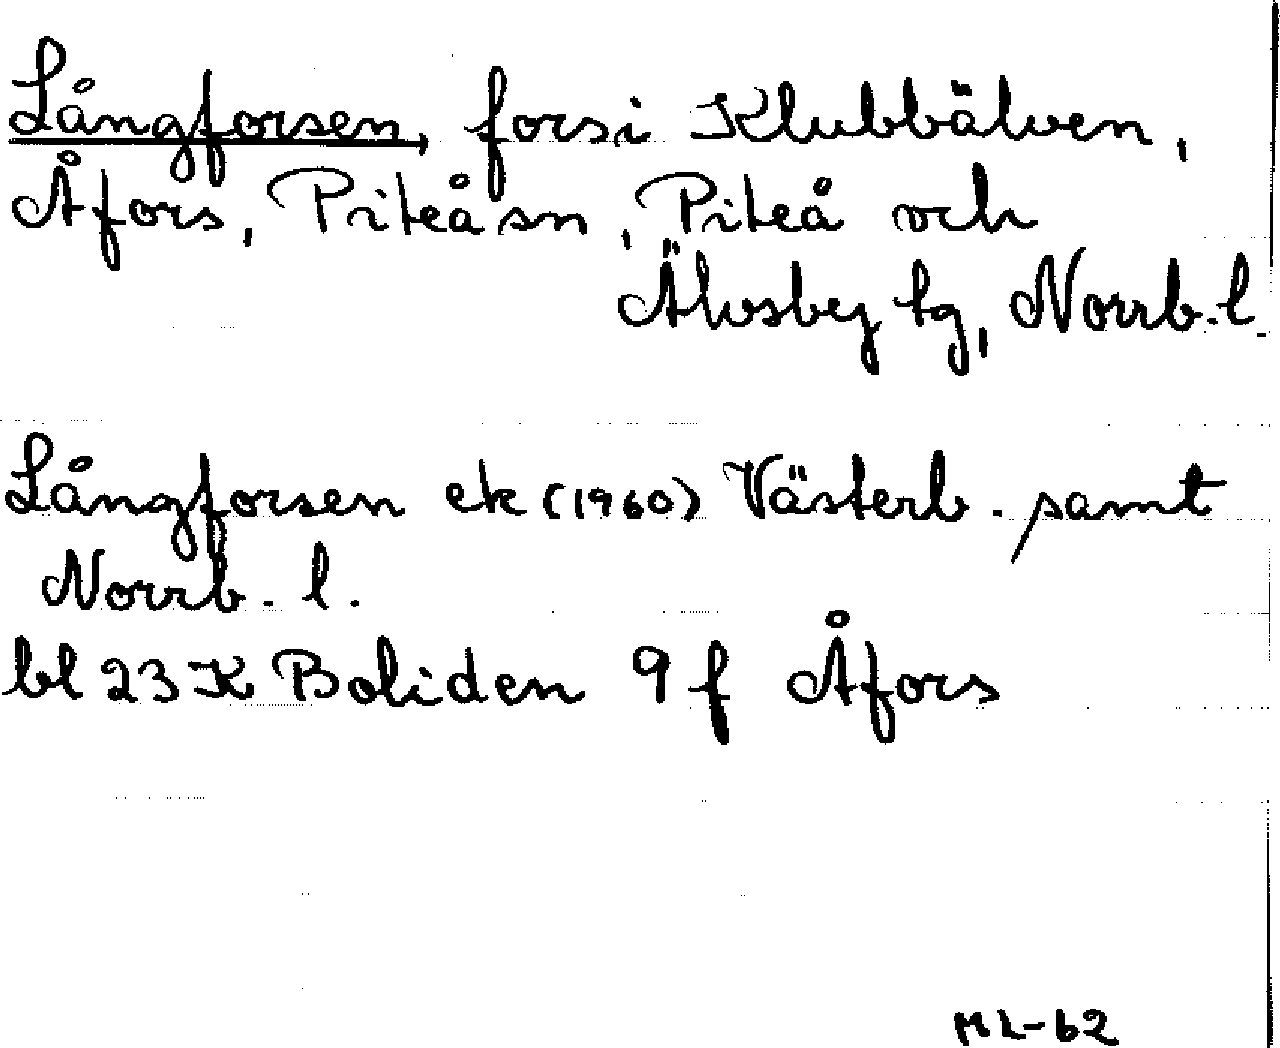 Långforsen, fors i Klubbälven,
Åfors, Piteå sn, Piteå och
Älvsby tg, Norrb. l.
Långforsen ek (1960) Västerb. samt
Norrb. l.
bl 23 K Boliden 9 f Åfors
ML-62